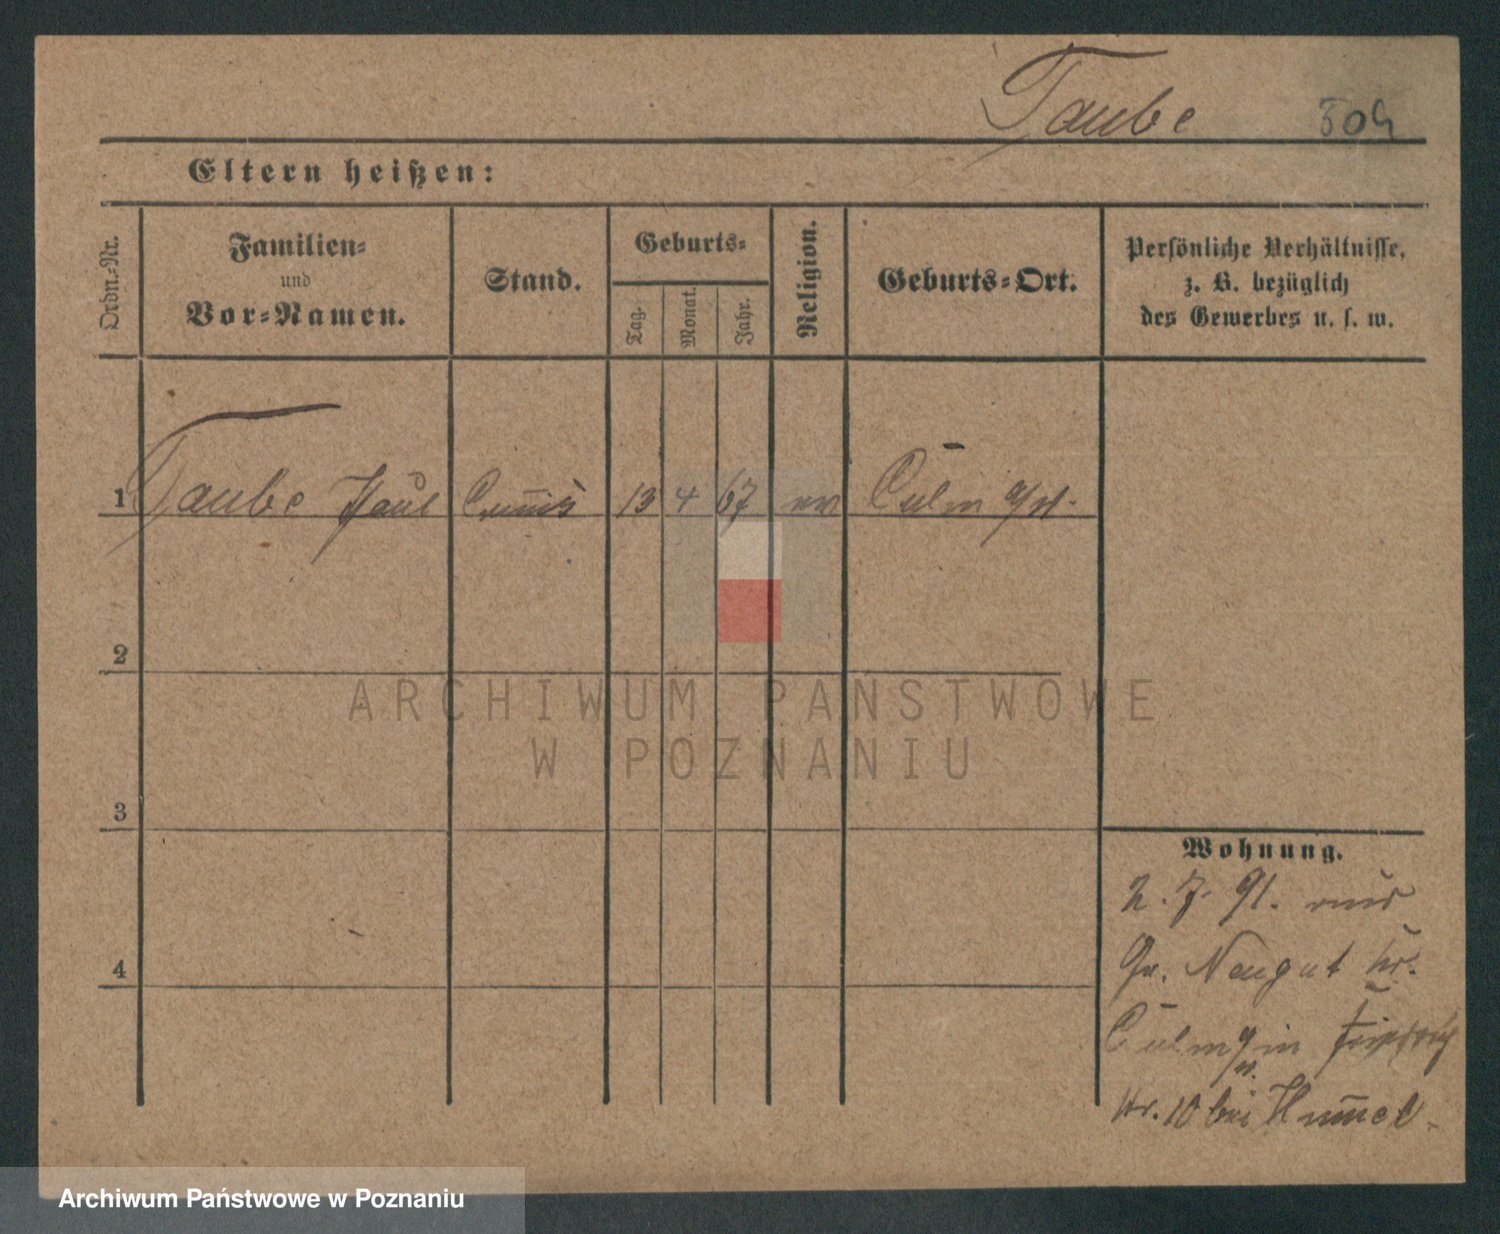 Taube 809
Eltern heißen:
Ordn.-Nr.
Familien-
und
Vor-Namen.
Stand.
Geburts-
Tag.
Monat.
Jahr.
Religion.
Geburts-Ort.
Persönliche Verhältnisse,
z. B. bezüglich
des Gewerbes u. s. w.
1 Taube Paul Commis 13 4 67 ev Culm
2
3
4
Wohnung.
2. 7. 91. aus
Gr. Neugut Kr.
Culm in Friedrich
str. 10 bei Hummel.
ARCHIWUM PAŃSTWOWE
W POZNANIU
Archiwum Państwowe w Poznaniu